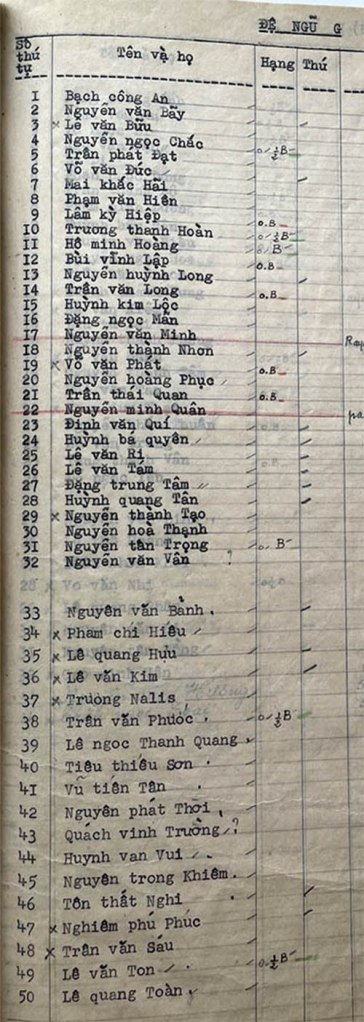 ĐỆ NGŨ G
Số thứ tự Tên và họ Hạng Thú
1 Bạch công An
2 Nguyễn văn Bãy
3 x Lê văn Bữu
4 Nguyễn ngọc Chắc
5 Trần phát Đạt o/½B
6 Võ văn Đức
7 Mai khắc Hãi
8 Phạm văn Hiên
9 Lâm kỳ Hiệp o.B
10 Trương thanh Hoàn o/½B
11 Hồ minh Hoàng o/B
12 Bùi vĩnh Lập o.B
13 Nguyễn huỳnh Long
14 Trần văn Long o.B
15 Huỳnh kim Lộc
16 Đặng ngọc Mẫn
17 Nguyễn văn Minh
18 Nguyễn thành Nhơn
19 x Võ văn Phát o.B
20 Nguyễn hoàng Phục
21 Trần thái Quan o.B
22 Nguyễn minh Quân pa
23 Đinh văn Quí
24 Huỳnh bá quyên
25 Lê văn Rí
26 Lê văn Tám
27 Đặng trung Tâm
28 Huỳnh quang Tân
29 x Nguyễn thành Tạo
30 Nguyễn hoà Thạnh
31 Nguyễn tân Trọng o. B
32 Nguyễn văn Vân ?
33 Nguyên văn Bảnh
34 x Phạm chí Hiếu
35 x Lê quang Hựu
36 x Lê văn Kim
37 x Trương Nalis
38 Trần văn Phước o/½B
39 Lê ngọc Thanh Quang
40 Tiêu thiếu Sơn
41 Vũ tiên Tân
42 Nguyên phát Thời
43 Quách vinh Trường ?
44 Huynh van Vui
45 Nguyên trong Khiêm
46 Tôn thất Nghi
47 x Nghiêm phú Phúc
48 x Trân văn Sáu
49 Lê văn Ton o.½B
50 Lê quang Toàn